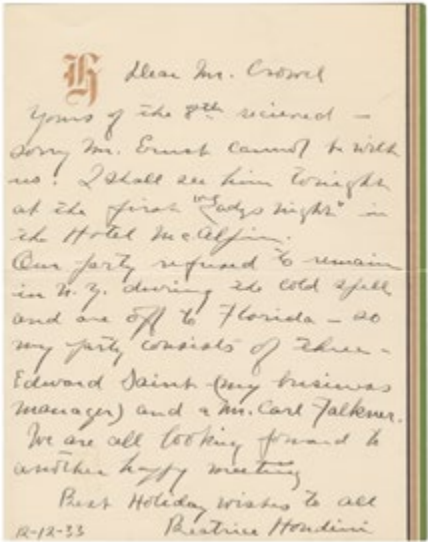 H
Dear Mr. Crowel
Yours of the 8th recieved —
sorry Mr. Ernst cannot be with
us. I shall see him tonight
at the first "Ladys night" in
the Hotel McAlpin.
Our party refused to remain
in N.Y. during the cold spell
and are off to Florida — so
my party consists of three —
Edward Saint (my business
manager) and a Mr. Carl Falkner.
We are all looking forward to
another happy meeting
Best Holiday wishes to all
12-12-33 Beatrice Houdini